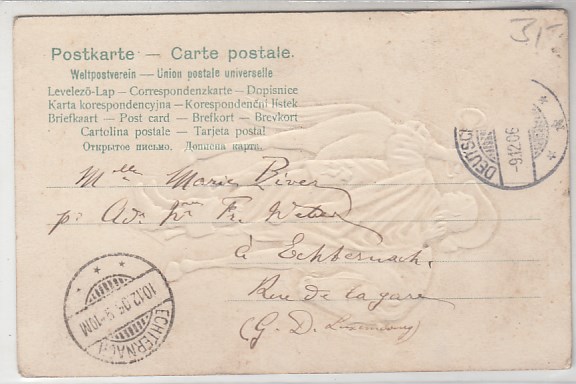 Postkarte — Carte postale.
Weltpostverein — Union postale universelle
Levelező-Lap — Correspondenzkarte — Dopisnice
Karta korespondencyjna — Korespondenční listek
Briefkaart — Post card — Brefkort — Brevkort
Cartolina postale — Tarjeta postal
Открытое письмо. Дописна карта.
Mlle Marie Biver
p. Adr. Fr. Weber
à Echternach
Rue de la gare
(G. D. Luxembourg)
DEUTSCH
-9.12.05
ECHTERNACH
10.12.05. 9-10M